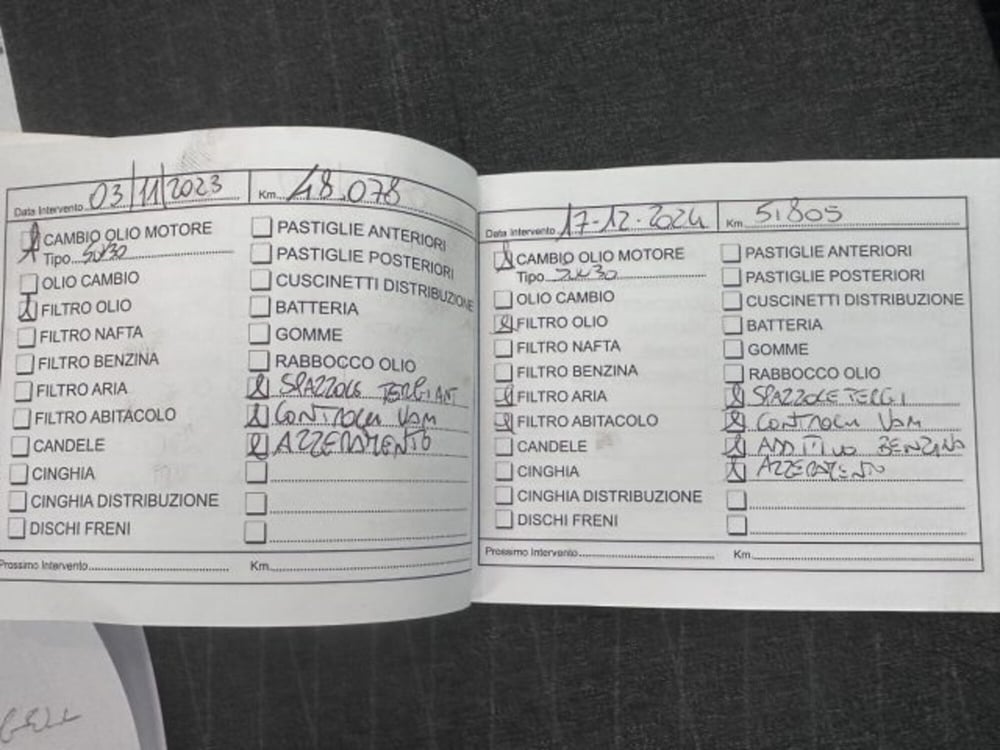 Data Intervento 03/11/2023 Km. 48.078
CAMBIO OLIO MOTORE
Tipo 5W30
OLIO CAMBIO
FILTRO OLIO
FILTRO NAFTA
FILTRO BENZINA
FILTRO ARIA
FILTRO ABITACOLO
CANDELE
CINGHIA
CINGHIA DISTRIBUZIONE
DISCHI FRENI
PASTIGLIE ANTERIORI
PASTIGLIE POSTERIORI
CUSCINETTI DISTRIBUZIONE
BATTERIA
GOMME
RABBOCCO OLIO
SPAZZOLE TERGIANT
CONTROLLI
AZZERAMENTO
Prossimo Intervento Km.
Data Intervento 17-12-2024 Km. 51805
CAMBIO OLIO MOTORE
Tipo 5W30
OLIO CAMBIO
FILTRO OLIO
FILTRO NAFTA
FILTRO BENZINA
FILTRO ARIA
FILTRO ABITACOLO
CANDELE
CINGHIA
CINGHIA DISTRIBUZIONE
DISCHI FRENI
PASTIGLIE ANTERIORI
PASTIGLIE POSTERIORI
CUSCINETTI DISTRIBUZIONE
BATTERIA
GOMME
RABBOCCO OLIO
SPAZZOLE TERGI
CONTROLLI
ADDITIVO BENZINA
AZZERAMENTO
Prossimo Intervento Km.